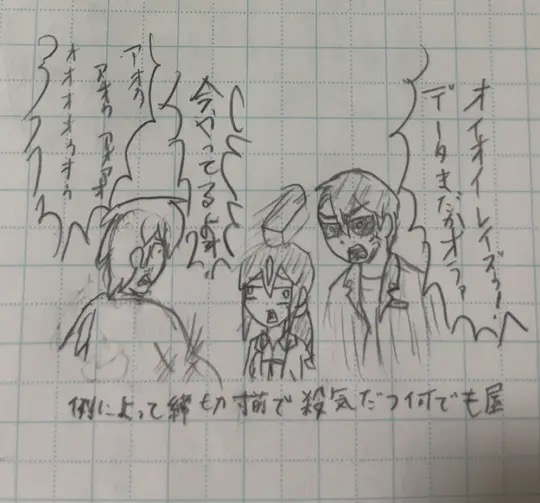 オイオイレイズゥ!
データまだかオラァ
今やってるよォ
アオゥ
アオゥ アオアオ
オオオオゥオゥ
例によって締切寸前で殺気だつ何でも屋